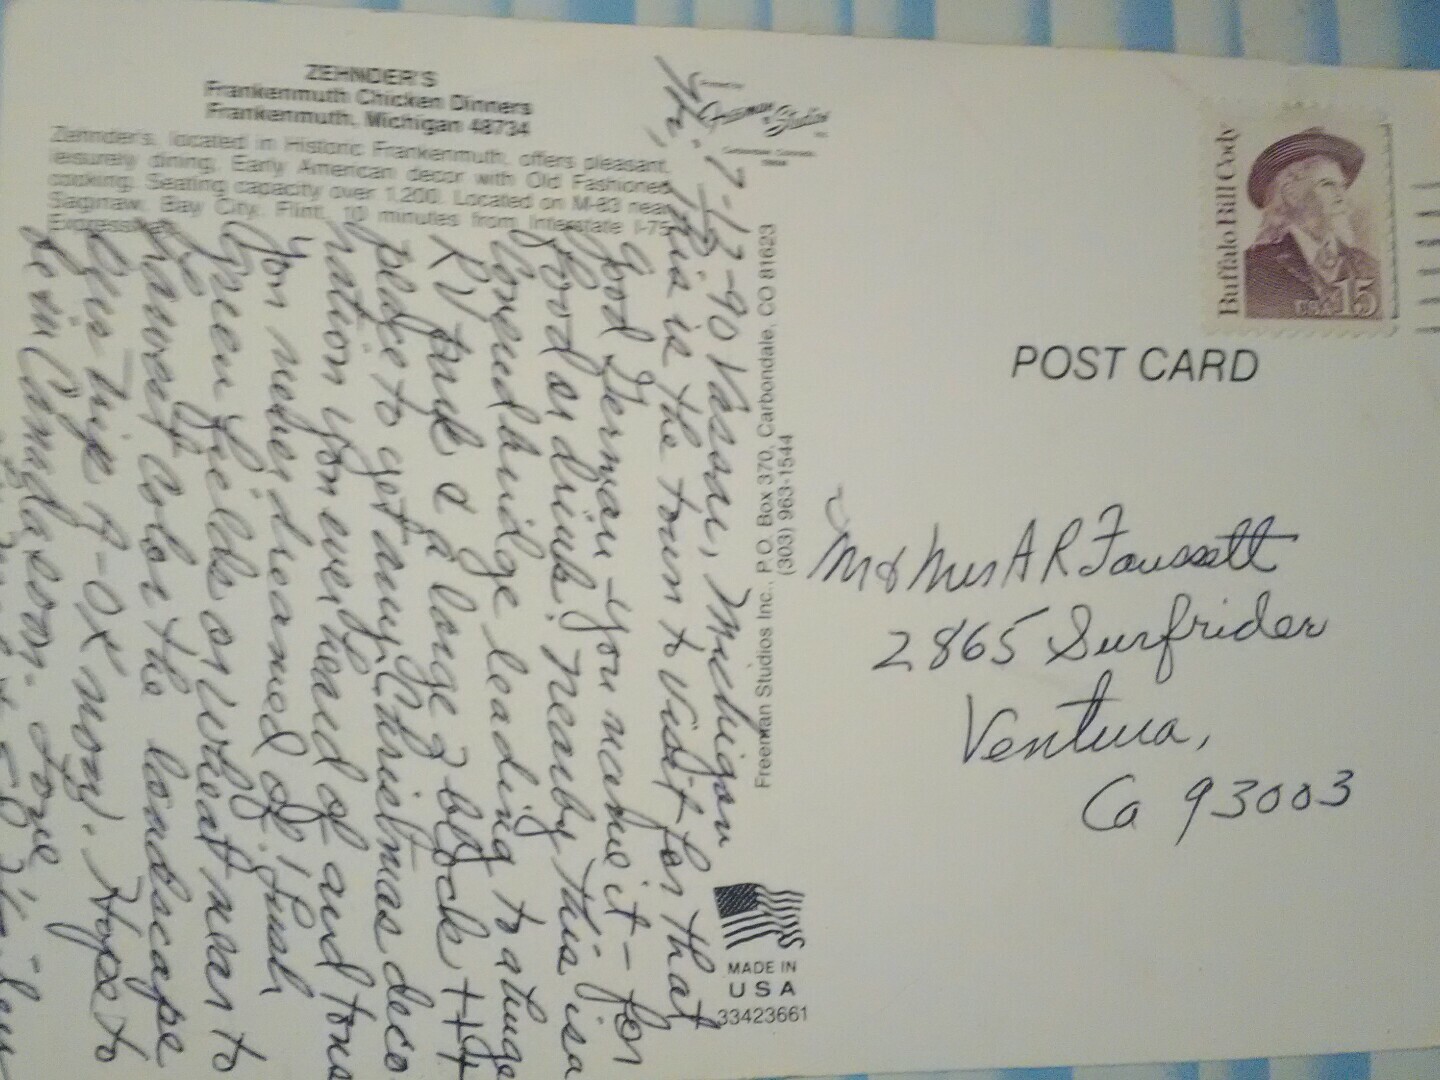 ZEHNDER'S
Frankenmuth Chicken Dinners
Frankenmuth, Michigan 48734
Zehnder's, located in Historic Frankenmuth, offers pleasant,
leisurely dining. Early American decor with Old Fashioned
cooking. Seating capacity over 1,200. Located on M-83 near
Saginaw, Bay City, Flint, 10 minutes from Interstate I-75
Expressway.
Freeman Studios
Carbondale, Colorado
7-13-90 Vassar, Michigan
This is the town to visit for that
good German - you name it - for
food or drink! Nearby this is a
covered bridge leading to a huge
RV park & a large 2 block ++++
place to get any Christmas deco
nation you ever heard of and tons
you never dreamed of! Lush
green fields of wheat near to
harvest color the landscape
trip A-OK now. Hope to
be in Canada soon. Love
Freeman Studios Inc., P.O. Box 370, Carbondale, CO 81623
(303) 963-1544
MADE IN
USA
33423661
Buffalo Bill Cody
USA 15
POST CARD
Mr & Mrs A R Faussett
2865 Surfrider
Ventura,
Ca 93003